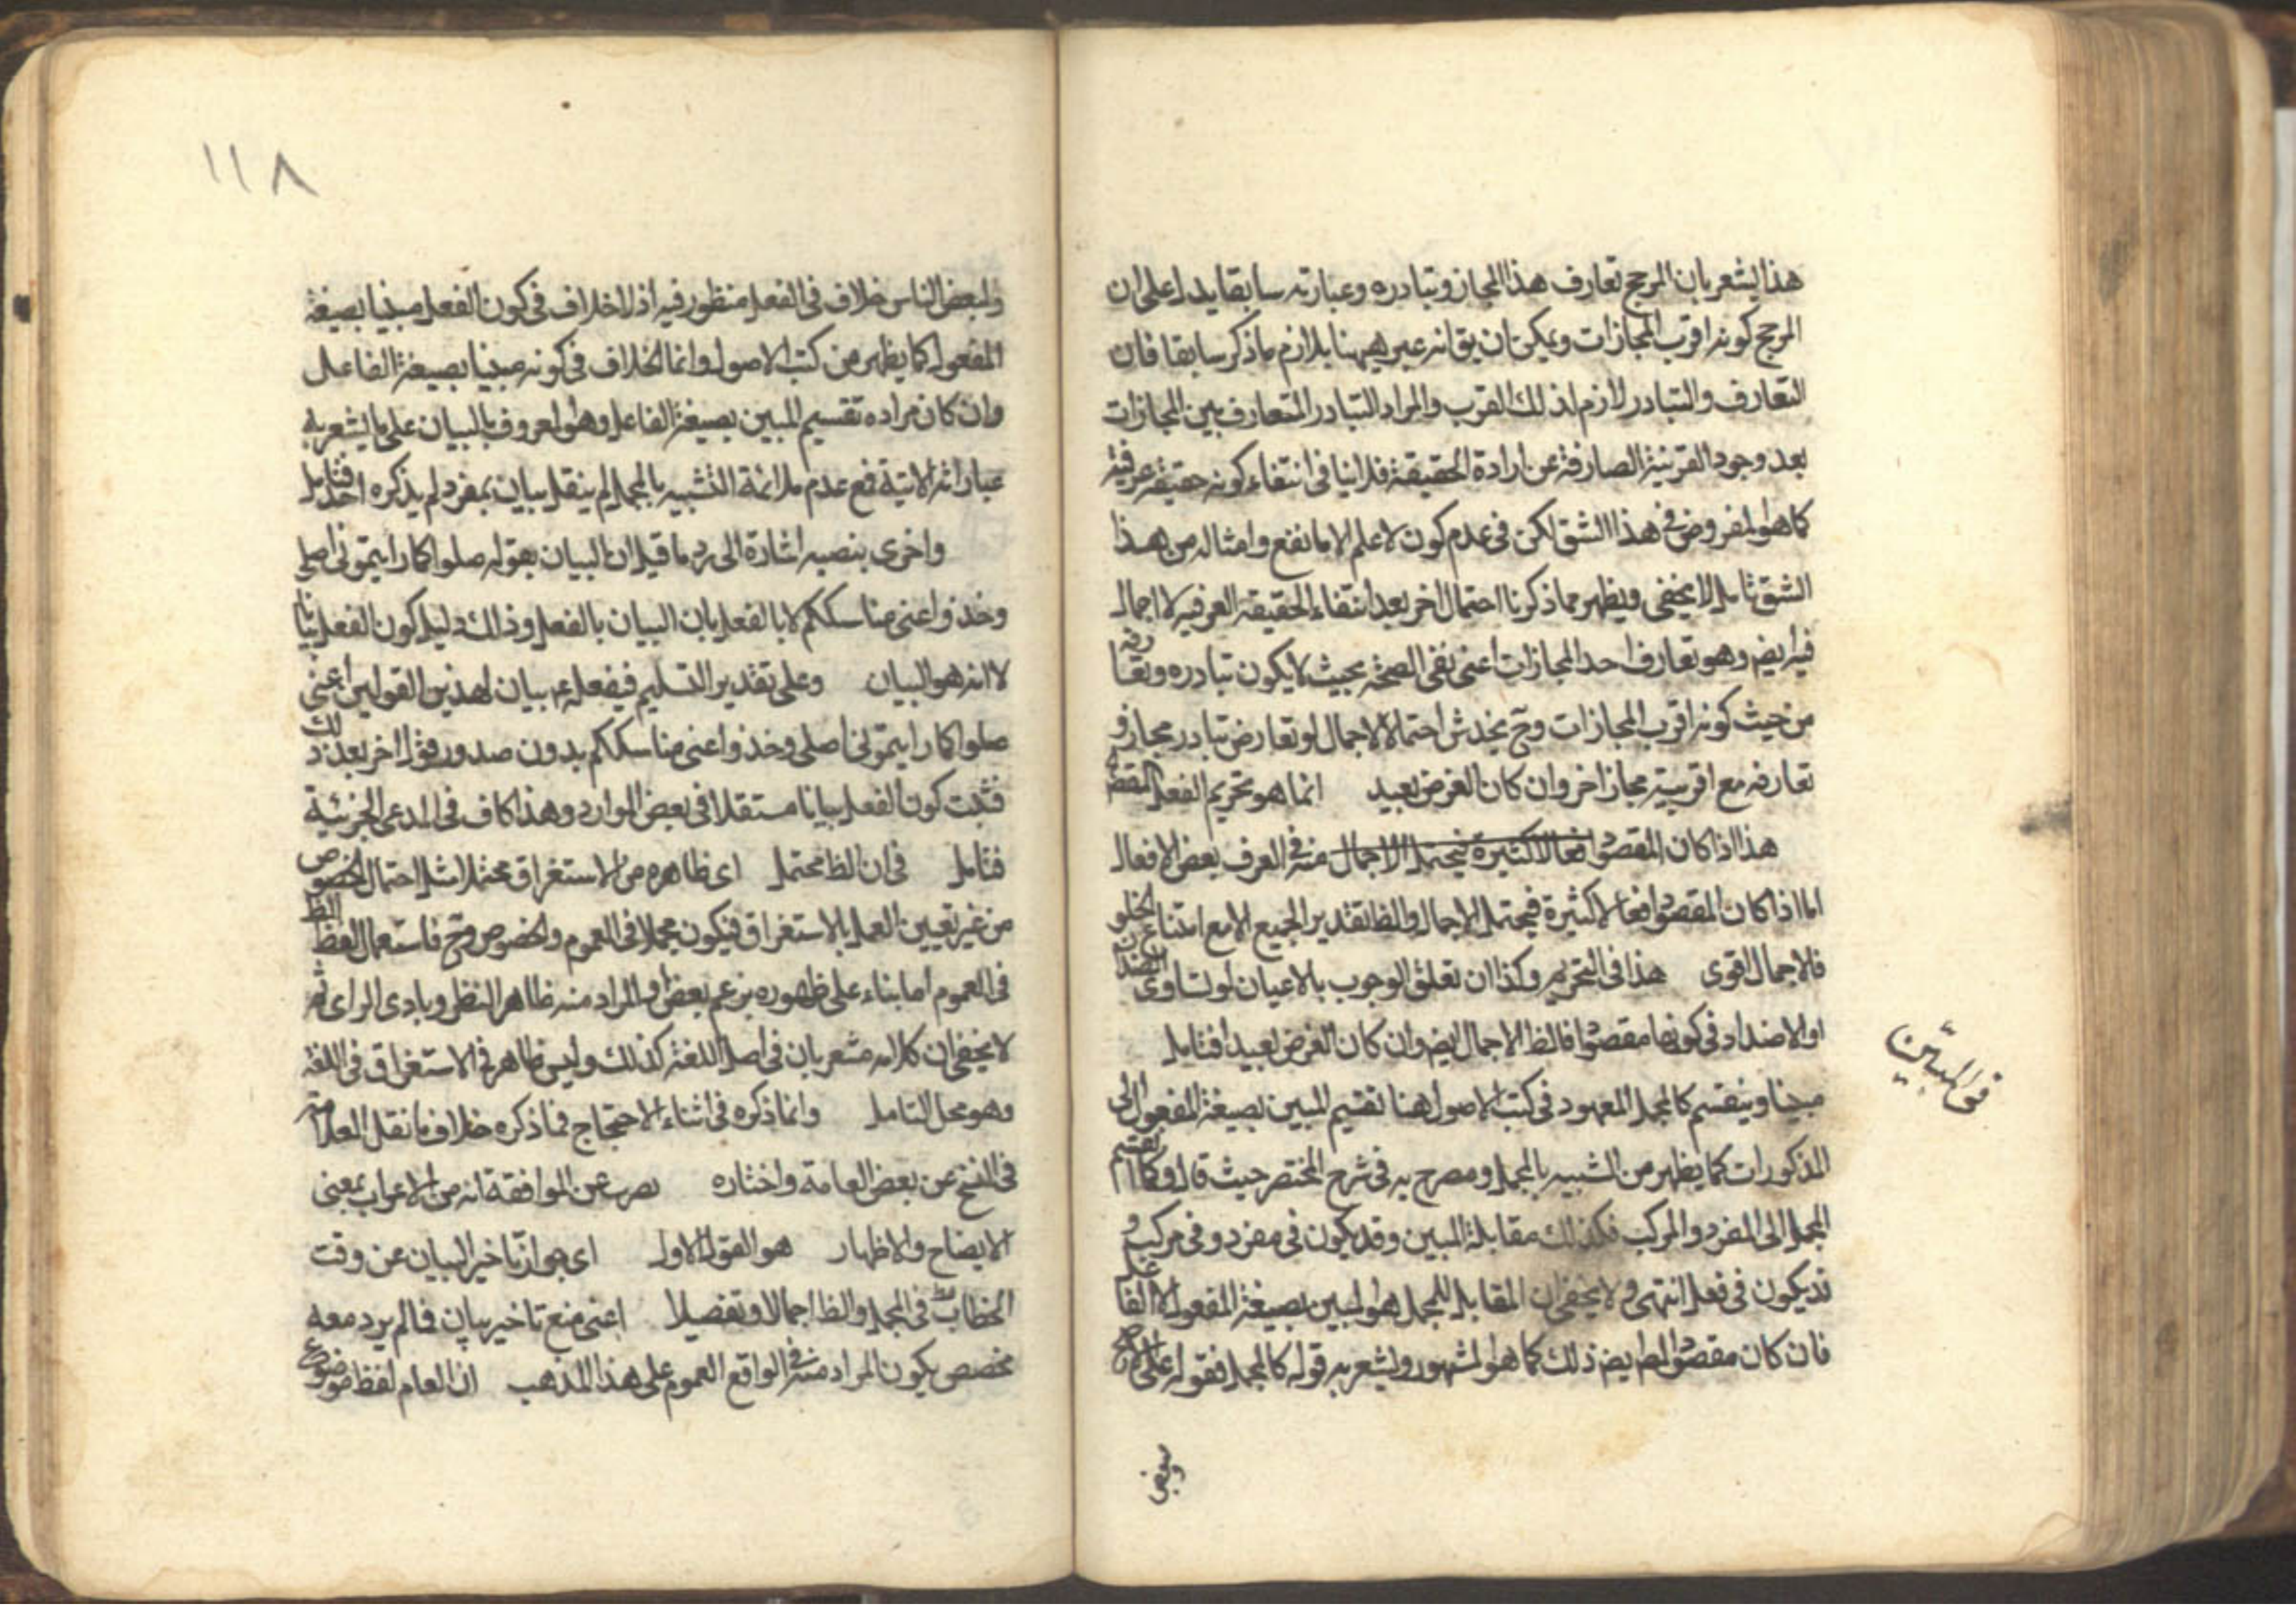 هذا يشعر بان المرجح تعارف هذا المجاز وتبادره وعبارته سابقا يدل على ان
المرجح كونه اقرب المجازات ويمكن ان يق انه عبر ههنا بلازم ماذكر سابقا فان
التعارف والتبادر لازم لذلك القرب والمراد التبادر المتعارف بين المجازات
بعد وجود القرينة الصارفة عن ارادة الحقيقة فلا ينافى انتفاء كونه حقيقة عرفية
كما هو المفروض فى هذا الشق لكن فى عدم كون لا علم الا ما نفع وامثاله من هذا
الشق تامل لا يخفى ويظهر مما ذكرنا احتمال اخر بعد انتفاء الحقيقة العرفية لا اجمال
فيه ايضا وهو تعارف احد المجازات اعنى نفى الصحة بحيث لا يكون تبادره وتعارفه
من حيث كونه اقرب المجازات وح يخدش احتمال الاجمال لو تعارض تبادر مجاز و
تعارفه مع اقربية مجاز اخر وان كان الفرض بعيد انما هو تحريم الفعل المقصود
هذا اذا كان المقصود افعالا كثيرة فيحتمل الاجمال منه فى العرف بعض الافعال
اما اذا كان المقصود افعالا كثيرة فيحتمل الاجمال والظ تقدير الجميع الا مع امتناع الخلو
فالاجمال اقوى هذا فى التحريم وكذا ان تعلق الوجوب بالاعيان لو تساوى الضدان
او الاضداد فى كونها مقصودا فالظ الاجمال ايضا وان كان الفرض بعيدا فتامل
قوله المبيّن
مبينا وينقسم كالمجمل المعهود فى كتب الاصول هنا تقسيم المبين بصيغة المفعول الى
المذكورات كما يظهر من التشبيه بالمجمل ومصرح به فى شرح المختصر حيث قال وكما انقسم
المجمل الى المفرد والمركب فكذلك مقابله المبين وقد يكون فى مفرد وفى مركب و
قد يكون فى فعل انتهى ولا يخفى ان المقابل للمجمل هو المبين بصيغة المفعول لا الفاعل
فان كان مقصود المص ايضا ذلك كما هو المشهور ويشعر به قوله كالمجمل فقوله على الاصح
وبعض
١١٨
ولبعض الناس خلاف فى الفعل منظور فيه اذ لا خلاف فى كون الفعل مبينا بصيغة
المفعول كما يظهر من كتب الاصول وانما الخلاف فى كونه مبينا بصيغة الفاعل
وان كان مراده تقسيم المبين بصيغة الفاعل وهو المعروف بالبيان على ما يشعر به
عباراته الاتية فمع عدم ملائمة التشبيه بالمجمل لم ينقل بيان بمفرد لم يذكره احد فتامل
واخرى بنصبه اشارة الى رد ما قيل ان البيان بقوله صلوا كما رايتمونى اصلى
وخذوا عنى مناسككم لا بالفعل بان البيان بالفعل وذلك دليل كون الفعل بيانا
لا انه هو البيان وعلى تقدير التسليم ففعله ع بيان لهذين القولين اعنى
صلوا كما رايتمونى اصلى وخذوا عنى مناسككم بدون صدور قول اخر بعد ذلك
فثبت كون الفعل بيانا مستقلا فى بعض الموارد وهذا كاف فى المدعى الجزئية
فتامل فى ان الظ محتمل اى ظاهره من الاستغراق محتملا مثل احتمال الخصوص
من غير تعيين العمل بالاستغراق فيكون مجملا فى العموم والخصوص وح فاستعمال لفظ الظ
فى العموم اما بناء على ظهوره بزعم بعض او المراد منه ظاهر النظر وبادى الراى ثم
لا يخفى ان كلامه مشعر بان فى اصل اللغة كذلك وليس ظاهره فى الاستغراق فى اللغة
وهو محل التامل وانما ذكره فى اثناء الاحتجاج فما ذكره خلاف ما نقل العلامة
فى النسخ عن بعض العامة واختاره يعرب عن الموافقة انه من الاعراب بمعنى
الايضاح والاظهار هو القول الاول اى جواز تاخير البيان عن وقت
الخطاب فى المجمل والظ اجمالا وتفصيلا اعنى منع تاخير بيان فما لم يرد معه
مخصص يكون المراد منه فى الواقع العموم على هذا المذهب ان العام لفظ موضوع